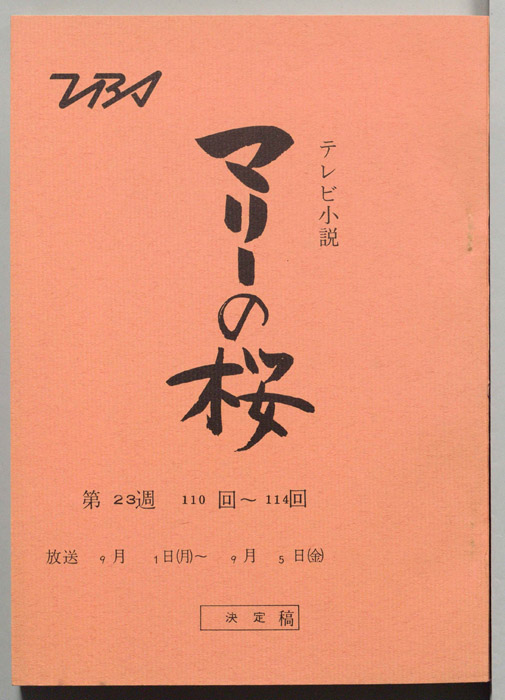 TBS
テレビ小説
マリーの桜
第 23週 110 回～114回
放送 9月 1日(月)～ 9月 5日(金)
決定稿